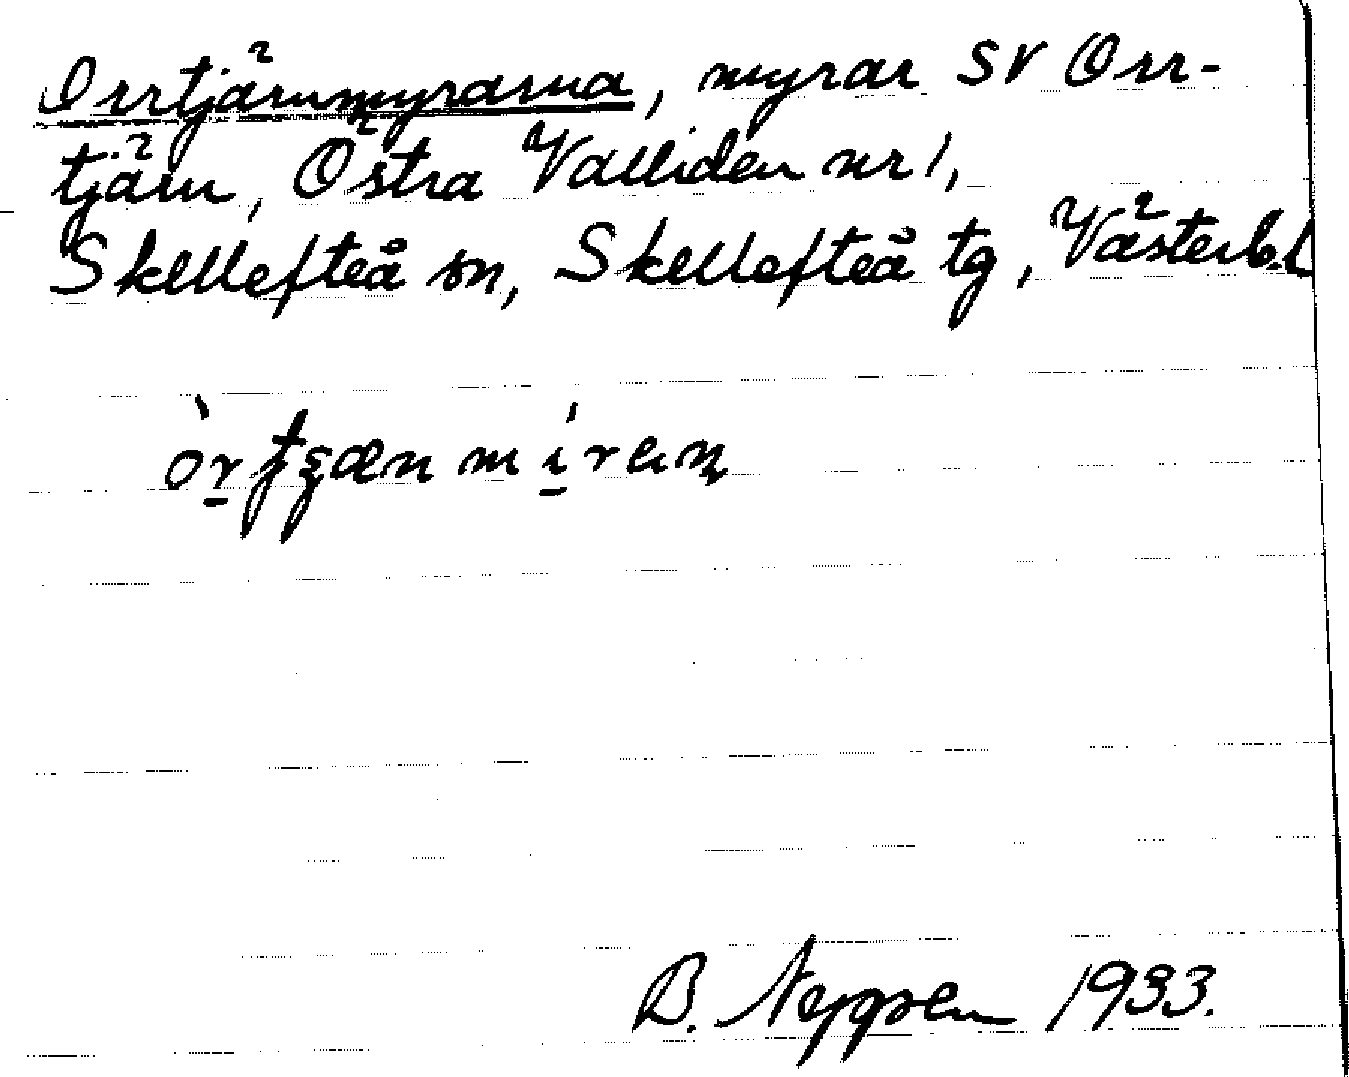 Orrtjärnmyrarna, myrar SV Orr-
tjärn, Östra Valliden nr 1,
Skellefteå sn, Skellefteå tg, Västerb.l
B. 1933.